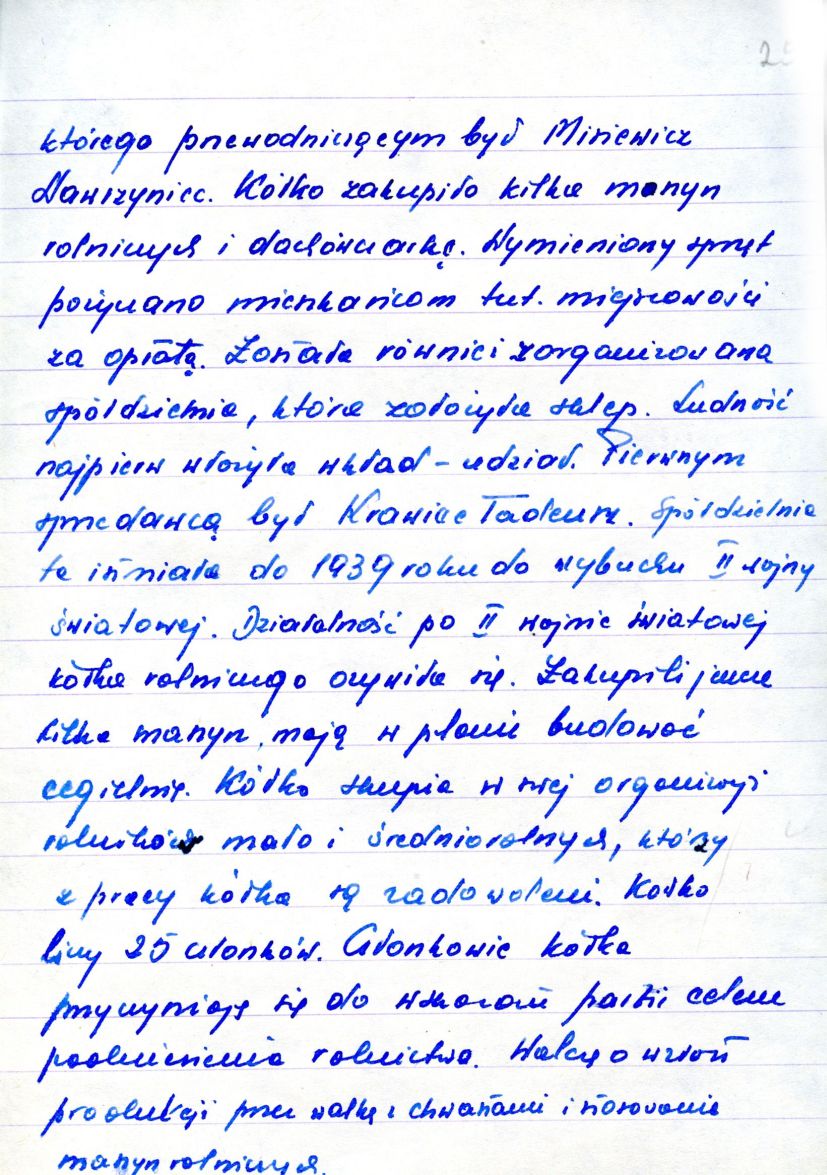 2
którego przewodniczącym był Misiewicz
Wawrzyniec. Kółko zakupiło kilka maszyn
rolniczych i dachówczarkę. Wymieniony sprzęt
pożyczano mieszkańcom tut. miejscowości
za opłatą. Została również zorganizowana
spółdzielnia, która założyła sklep. Ludność
najpierw włożyła wkład - udział. Pierwszym
sprzedawcą był Krawiec Tadeusz. Spółdzielnia
ta istniała do 1939 roku do wybuchu II wojny
światowej. Działalność po II wojnie światowej
kółka rolniczego ożywiła się. Zakupili jeszcze
kilka maszyn, mają w planie budować
cegielnię. Kółko skupia w swej organizacji
rolników mało i średniorolnych, którzy
z pracy kółka są zadowoleni. Kółko
liczy 25 członków. Członkowie kółka
przyczyniają się do wskazań partii celem
podniesienia rolnictwa. Walczą o wzrost
produkcji przez walkę z chwastami i stosowanie
maszyn rolniczych.